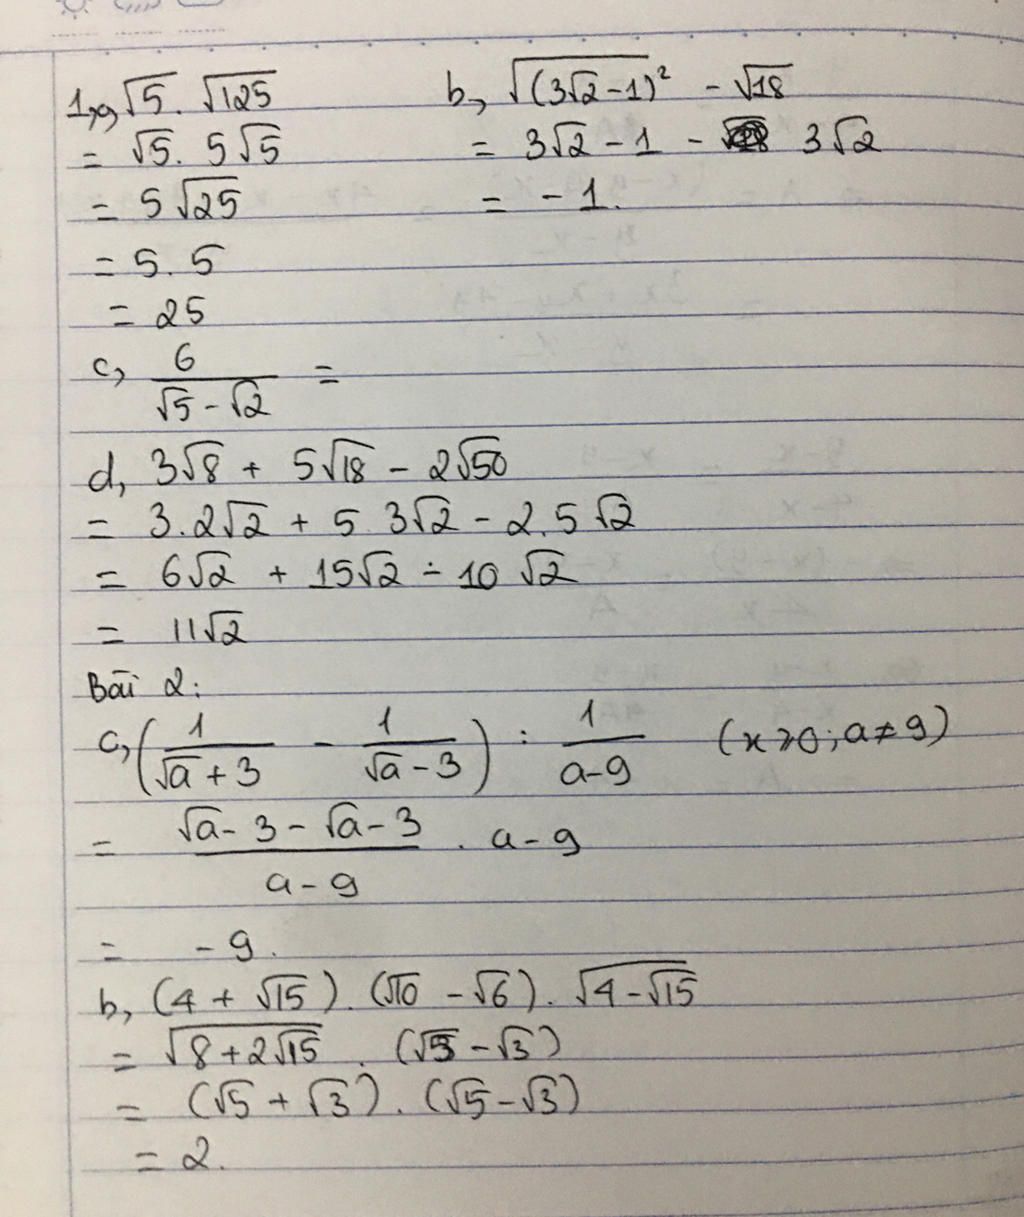 1, a, √5 . √125
= √5 . 5√5
= 5√25
= 5 . 5
= 25
b, √(3√2 - 1)² - √18
= 3√2 - 1 - 3√2
= - 1.
c, 6/(√5 - √2) =
d, 3√8 + 5√18 - 2√50
= 3.2√2 + 5.3√2 - 2.5√2
= 6√2 + 15√2 - 10√2
= 11√2
Bài 2:
c, (1/(√a + 3) - 1/(√a - 3)) : 1/(a - 9) (x ≥ 0 ; a ≠ 9)
= (√a - 3 - √a - 3)/(a - 9) . a - 9
= - 9.
b, (4 + √15) . (√10 - √6) . √(4 - √15)
= √(8 + 2√15) . (√5 - √3)
= (√5 + √3) . (√5 - √3)
= 2.